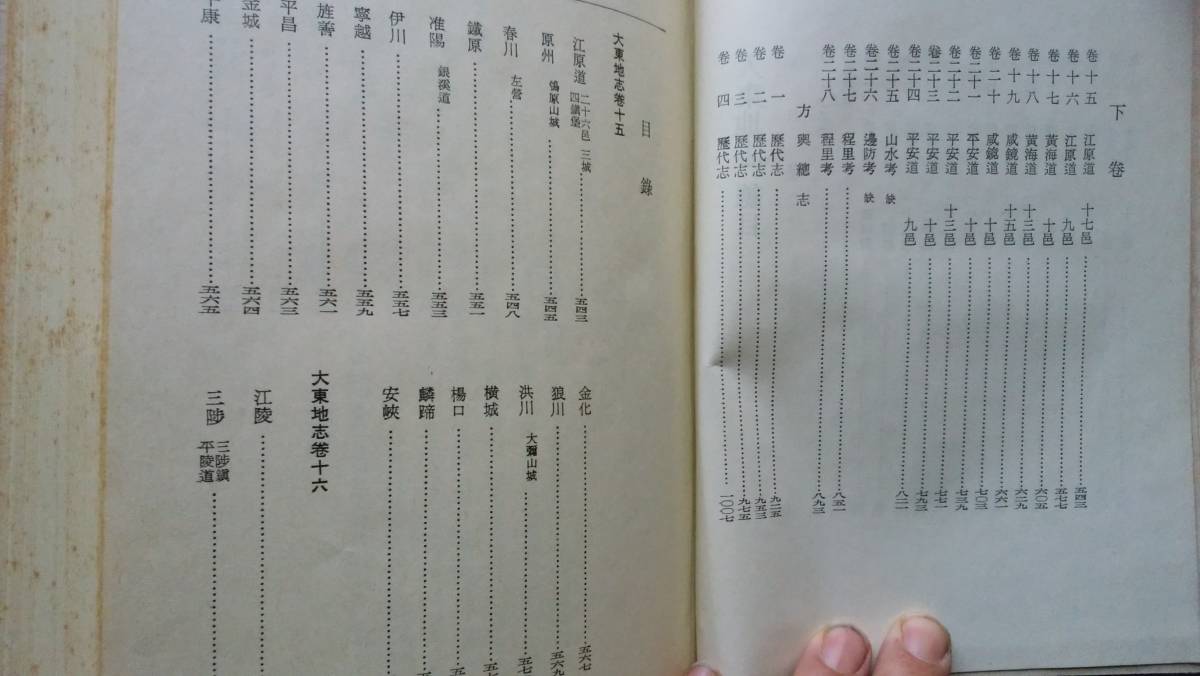 下卷
卷十五 江原道 十七邑 五四三
卷十六 江原道 九邑 五七七
卷十七 黃海道 十邑 六〇五
卷十八 黃海道 十三邑 六二九
卷十九 咸鏡道 十五邑 六六一
卷二十 咸鏡道 十邑 七〇三
卷二十一 平安道 十邑 七三九
卷二十二 平安道 十三邑 七七一
卷二十三 平安道 十邑 七九三
卷二十四 平安道 九邑 八二一
卷二十五 山水考 缺
卷二十六 邊防考 缺
卷二十七 程里考 八五一
卷二十八 程里考 八九三
方輿總志
卷一 歷代志 九二五
卷二 歷代志 九五三
卷三 歷代志 九七五
卷四 歷代志 一〇〇七
目錄
大東地志卷十五
江原道 二十六邑 三城 四鎭堡 五四三
原州 鴒原山城 五四五
春川 左營 五四八
鐵原 五五一
淮陽 銀溪道 五五三
伊川 五五七
寧越 五五九
旌善 五六一
平昌 五六三
金城 五六四
康 五六五
金化 五六七
狼川 五六九
洪川 大彌山城 五七
橫城 五七
楊口 五
麟蹄 五
安峽
大東地志卷十六
江陵
三陟 三陟鎭 平陵道